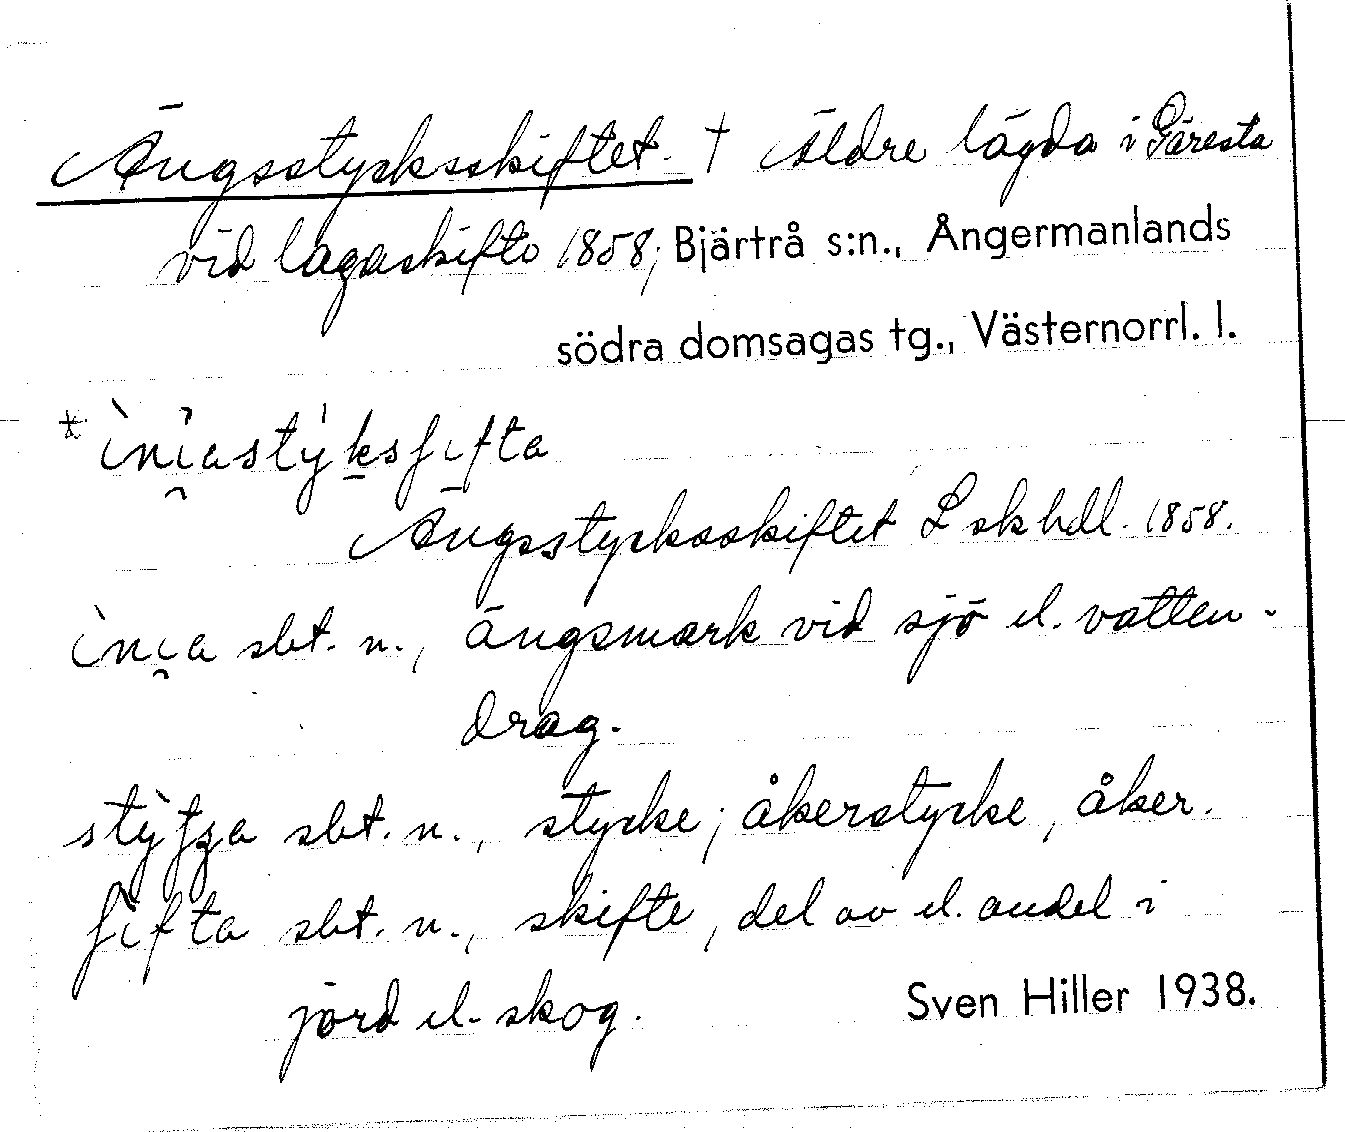 Ängsstycksskiftet † äldre lägda i Gäresta
vid lagaskifte 1858, Bjärtrå s:n., Ångermanlands
södra domsagas tg., Västernorrl. l.
Ängsstycksskiftet L sk hdl. 1858.
sbt. n., ängsmark vid sjö el. vatten-
drag.
sbt. n., stycke; åkerstycke, åker.
ʃifta sbt. n., skifte, del av el. andel i
jord el. skog. Sven Hiller 1938.